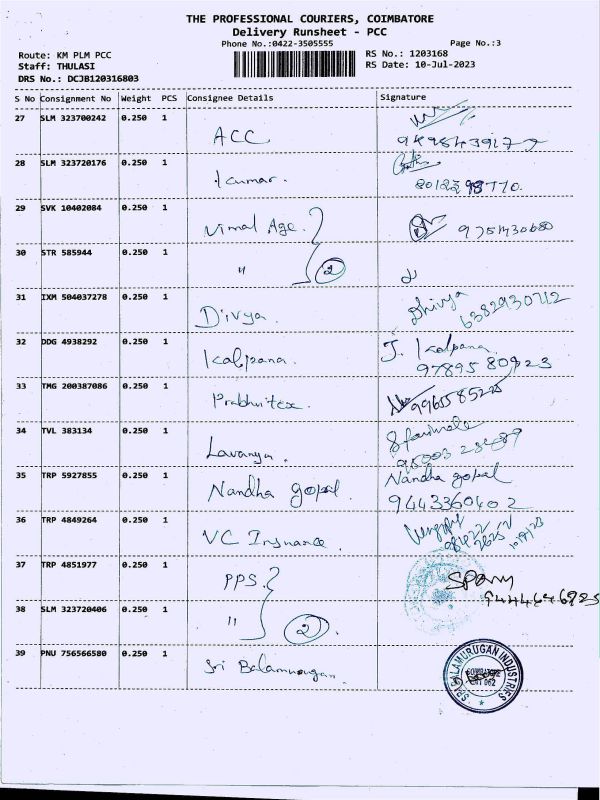 THE PROFESSIONAL COURIERS, COIMBATORE
Delivery Runsheet - PCC
Phone No.:0422-3505555
Page No.:3
Route: KM PLM PCC
RS No.: 1203168
Staff: THULASI
RS Date: 10-Jul-2023
DRS No.: DCJB120316803
S No Consignment No Weight PCS Consignee Details Signature
27 SLM 323700242 0.250 1 ACC
28 SLM 323720176 0.250 1 kumar.
29 SVK 10402084 0.250 1 Vimal Age.
30 STR 585944 0.250 1 " 2
31 IXM 504037278 0.250 1 Divya. Dhivya
6382930712
32 DDG 4938292 0.250 1 Kalpana. J. Kalpana
97895 80923
33 TMG 200387086 0.250 1 Prabhutex.
34 TVL 383134 0.250 1 Lavanya.
35 TRP 5927855 0.250 1 Nandha gopal. Nandha gopal
9443360402
36 TRP 4849264 0.250 1 VC Insurance.
37 TRP 4851977 0.250 1 PPS
38 SLM 323720406 0.250 1 " 2.
39 PNU 756566580 0.250 1 Sri Balamurugan.
SRI BALAMURUGAN INDUSTRIES